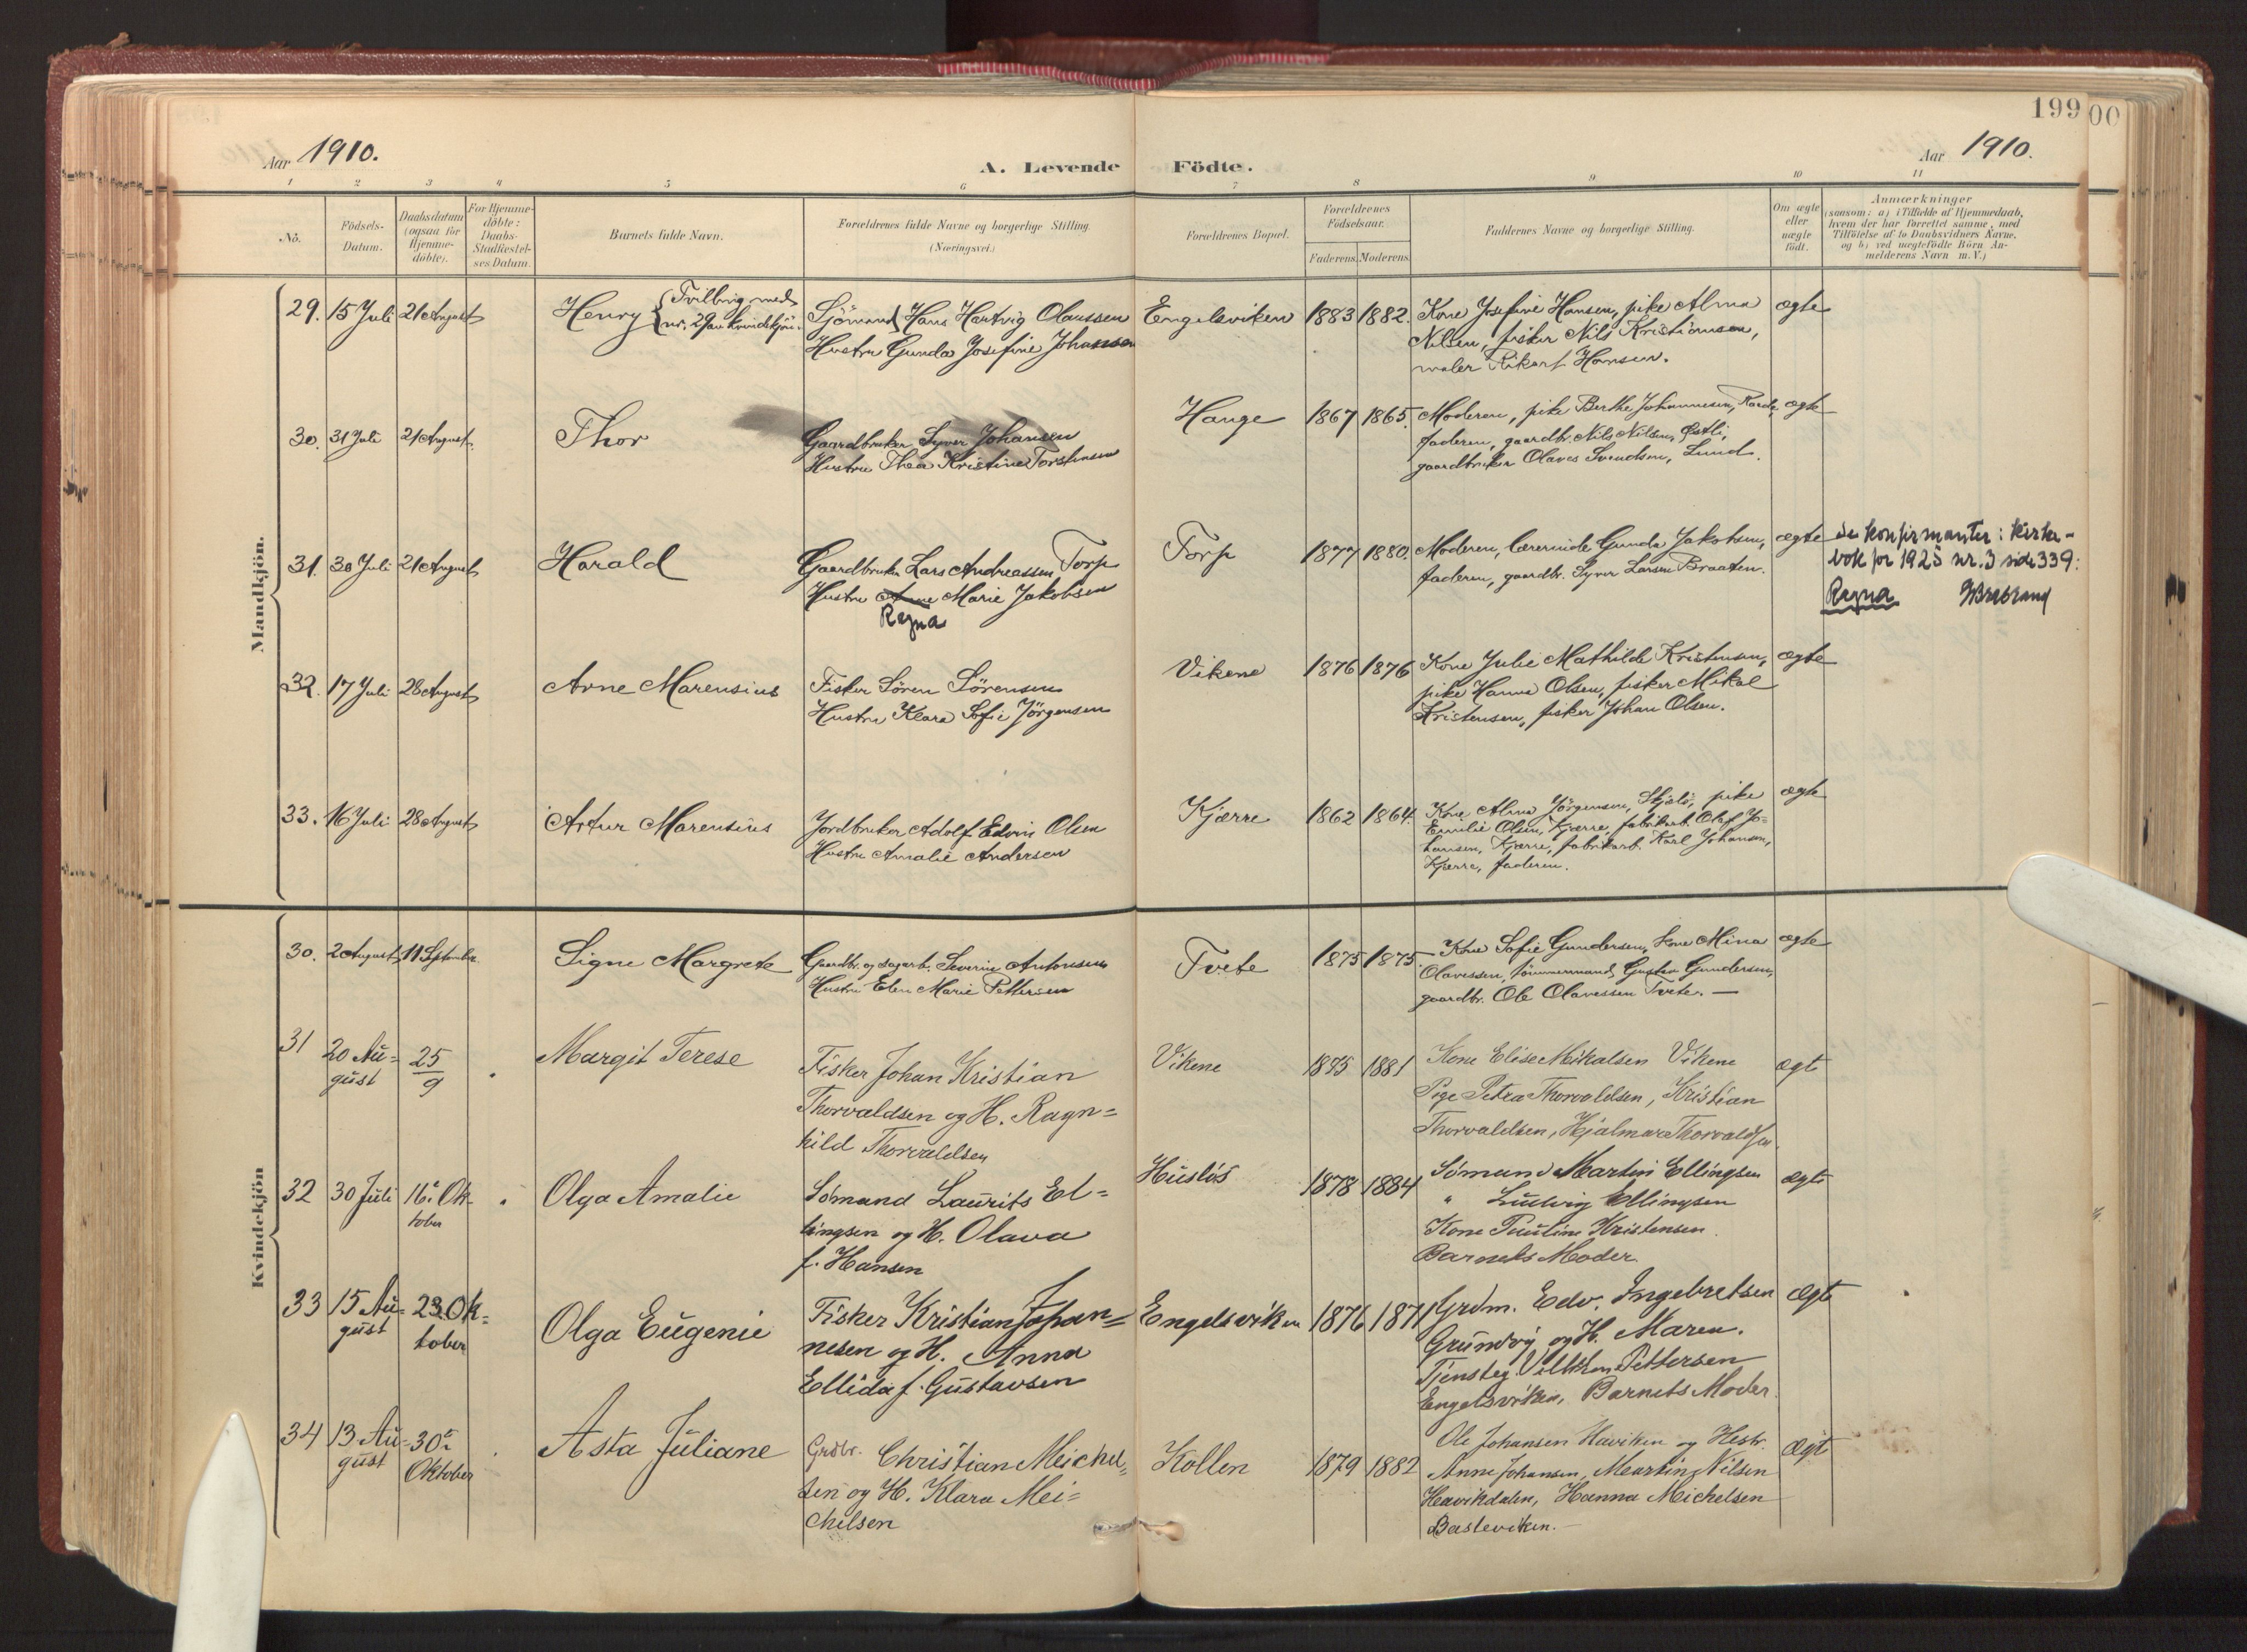 199
00
Aar 1910.
A. Levende Födte.
Aar 1910.
1 2 3 4 5 6 7 8 9 10 11
No.
Födsels-
Datum.
Daabsdatum
(ogsaa for
Hjemme-
döbte).
For Hjemme-
döbte:
Daabs-
Stadfæstel-
ses Datum.
Barnets fulde Navn.
Forældrenes fulde Navne og borgerlige Stilling.
(Næringsvei.)
Forældrenes Bopæl.
Forældrenes
Födselsaar.
Faderens. Moderens.
Faddernes Navne og borgerlige Stilling.
Om ægte
eller
uægte
födt.
Anmærkninger
(saasom: a) i Tilfælde af Hjemmedaab,
hvem der har forrettet samme, med
Tilföielse af to Daabsvidners Navne,
og b) ved uægtefödte Börn An-
melderens Navn m. V.)
Mandkjön.
29. 15 Juli 21 August
Henry { Tvilling med
nr. 29 av kvindekjön.
Sjömand Hans Hartvig Olaussen
Hustru Gunda Josefine Johansen
Engelsviken 1883 1882.
Kone Josefine Hansen, pike Alma
Nilsen, fisker Nils Kristiansen,
maler Rikart Hansen.
ægte
30. 31 Juli 21 August.
Thor
Gaardbruker Syver Johansen
Hustru Thea Kristine Torstensen
Hauge 1867 1865.
Moderen, pike Berthe Johannesen,
faderen, gaardbr. Nils Nilsen, Østli,
gaardbruker Olaves Svendsen, Lund.
ægte
31. 30 Juli 21 August
Harald
Gaardbruker Lars Andreassen Torp
Hustru Anne Marie Jakobsen
Ragna
Torp 1877 1880.
Moderen, lærerinde Gunda Jakobsen,
faderen, gaardbr. Syver Larsen Braaten.
ægte
Se konfirmanter: kirke-
bok for 1925 nr. 3 side 339:
Ragna
32. 17 Juli 28 August
Arne Marensius
Fisker Sören Sörensen
Hustru Klara Sofie Jörgensen
Vikene 1876 1876
Kone Julie Mathilde Kristensen,
pike Hanna Olsen, fisker Mikal
Kristensen, fisker Johan Olsen.
ægte
33. 16 Juli 28 August
Artur Marensius
Jordbruker Adolf Edvin Olsen
Hustru Amalie Andersen
Kjærre 1862 1864.
Kone Alma Jörgensen, pike
Emilie Olsen, Kjærre, fabrikarb. Olaf Jo=
hansen, Kjærre, fabrikarb. Karl Johansen,
Kjærre, faderen.
ægte
Kvindekjön
30. 2 August 11 September
Signe Margrete
Gaardbr. og sagarb. Severin Antonsen
Hustru Elen Marie Pettersen
Tvete 1875 1875
Kone Sofie Gundersen, kone Mina
Olavessen, tömmermand Gustav Gundersen,
gaardbr. Ole Olavessen Tvete. —
ægte
31 20 Au=
gust
25
9
Margit Terese
Fisker Johan Kristian
Thorvaldsen og H. Ragn=
hild Thorvaldsen
Vikene 1875 1881
Kone Elise Mikalsen Vikene
Pige Petra Thorvaldsen, Kristian
Thorvaldsen, Hjalmar Thorvaldsen.
ægt
32 30 Juli 16. Ok-
tober
Olga Amalie
Sömand Laurits El=
lingsen og H. Olava
f. Hansen
Huslös 1878 1884
Sömand Martin Ellingsen
" Ludvig Ellingsen
Kone Pauline Kristensen.
Barnets Moder.
ægt
33 15 Au=
gust
23. Ok=
tober
Olga Eugenie
Fisker Kristian Johan=
nesen og H. Anna
Ellida f. Gustavsen
Engelsviken 1876 1871
Grdm. Edv. Ingebretsen
Grundvig og H. Maren.
Tjensteg. Vilhelm Pettersen
Engelsviken, Barnets Moder.
ægt
34 13 Au-
gust
30.
Oktober
Asta Juliane
Grdbr. Christian Meichel=
sen og H. Klara Mei=
chelsen
Kollen 1879 1882
Ole Johansen Haviken og Hustr.
Anne Johansen, Martin Nilsen
Heavikdalen, Hanna Michelsen
Basteviken. —
ægt